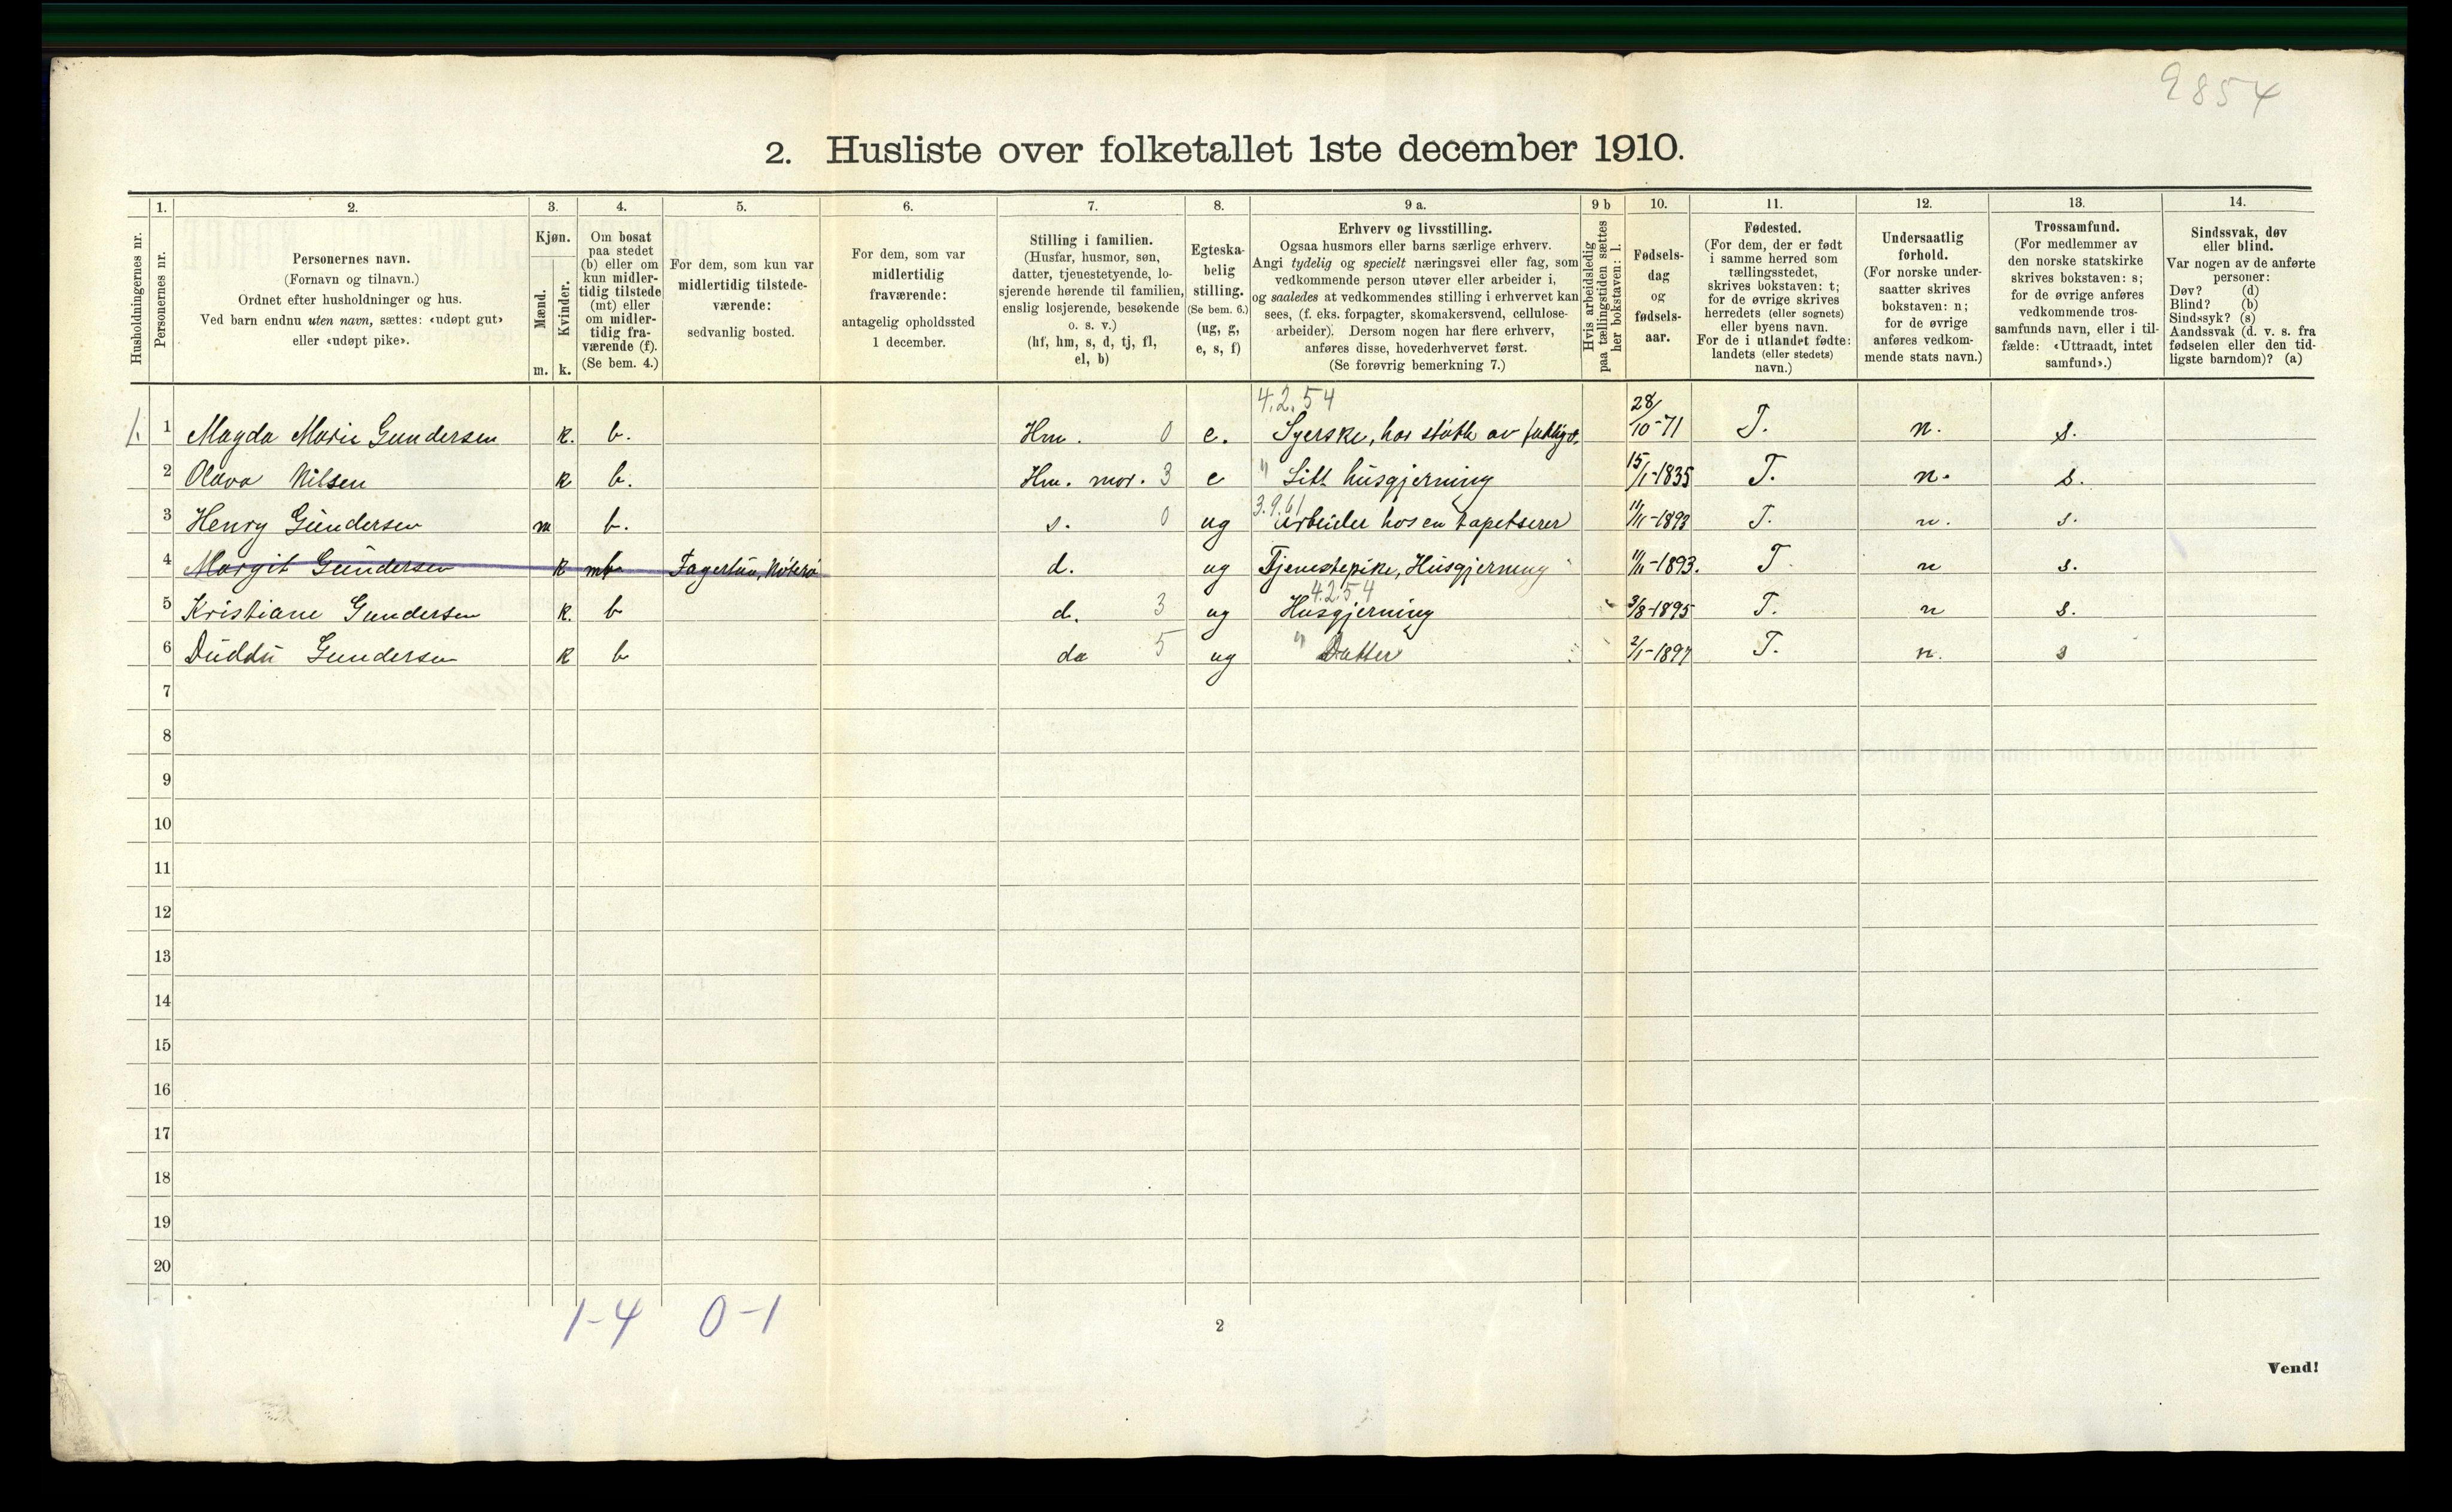 9854
2. Husliste over folketallet 1ste december 1910.
Husholdningernes nr.
1.
Personernes nr.
2.
Personernes navn.
(Fornavn og tilnavn.)
Ordnet efter husholdninger og hus.
Ved barn endnu uten navn, sættes: «udøpt gut»
eller «udøpt pike».
3.
Kjøn.
Mænd.
Kvinder.
m. k.
4.
Om bosat
paa stedet
(b) eller om
kun midler-
tidig tilstede
(mt) eller
om midler-
tidig fra-
værende (f).
(Se bem. 4.)
5.
For dem, som kun var
midlertidig tilstede-
værende:
sedvanlig bosted.
6.
For dem, som var
midlertidig
fraværende:
antagelig opholdssted
1 december.
7.
Stilling i familien.
(Husfar, husmor, søn,
datter, tjenestetyende, lo-
sjerende hørende til familien,
enslig losjerende, besøkende
o. s. v.)
(hf, hm, s, d, tj, fl,
el, b)
8.
Egteska-
belig
stilling.
(Se bem. 6.)
(ug, g,
e, s, f)
9 a.
Erhverv og livsstilling.
Ogsaa husmors eller barns særlige erhverv.
Angi tydelig og specielt næringsvei eller fag, som
vedkommende person utøver eller arbeider i,
og saaledes at vedkommendes stilling i erhvervet kan
sees, (f. eks. forpagter, skomakersvend, cellulose-
arbeider). Dersom nogen har flere erhverv,
anføres disse, hovederhvervet først.
(Se forøvrig bemerkning 7.)
9 b
Hvis arbeidsledig
paa tællingstiden sættes
her bokstaven: l.
10.
Fødsels-
dag
og
fødsels-
aar.
11.
Fødested.
(For dem, der er født
i samme herred som
tællingsstedet,
skrives bokstaven: t;
for de øvrige skrives
herredets (eller sognets)
eller byens navn.
For de i utlandet fødte:
landets (eller stedets)
navn.)
12.
Undersaatlig
forhold.
(For norske under-
saatter skrives
bokstaven: n;
for de øvrige
anføres vedkom-
mende stats navn.)
13.
Trossamfund.
(For medlemmer av
den norske statskirke
skrives bokstaven: s;
for de øvrige anføres
vedkommende tros-
samfunds navn, eller i til-
fælde: «Uttraadt, intet
samfund».)
14.
Sindssvak, døv
eller blind.
Var nogen av de anførte
personer:
Døv? (d)
Blind? (b)
Sindssyk? (s)
Aandssvak (d. v. s. fra
fødselen eller den tid-
ligste barndom)? (a)
4.2.54
1. 1 Magda Marie Gundersen k. b. Hm. 0 e. Syerske, har støtte av 28/10-71 T. n. s.
2 Olava Nilsen k b. Hm. mor. 3 e " Litt husgjerning 15/1-1835 T. n. s.
3.9.61
3 Henry Gundersen m b. s. 0 ug Arbeider hos en tapetserer 11/11-1893 T. n. s.
4 Margit Gundersen k mt Fagertun, Nøterø d. ug Tjenestepike, Husgjerning 11/11-1893. T n s.
4.2.54
5 Kristiane Gundersen k. b d. 3 ug Husgjerning 3/8-1895 T. n s.
6 Duddu Gundersen k b do 5 ug " Datter 2/1-1897 T. n. s
7
8
9
10
11
12
13
14
15
16
17
18
19
20
1-4 0-1
2
Vend!